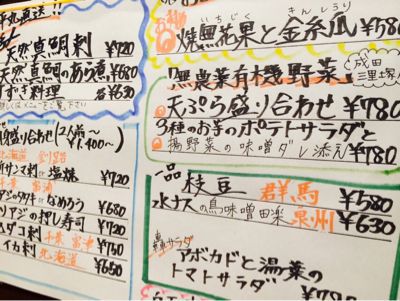 直送!!
天然真鯛刺 ¥720
天然真鯛のあら煮 ¥680
すずき料理 各¥630
詳しくはメニューをご覧下さい
刺盛り合わせ (2人前〜 ¥1,400〜)
北海道 釧路
新サンマ刺 塩焼 ¥720
千葉 富浦
アジのタタキ なめろう ¥680
アジの押し寿司 ¥720
ダコ刺 千葉 富津 ¥750
イカ刺 北海道 ¥650
いちじく きんしうり
焼無花果と金糸瓜 ¥580
無農薬有機野菜 成田 三里塚
天ぷら盛り合わせ ¥780
3種のお芋のポテトサラダと
揚野菜の味噌ダレ添え ¥780
一品
枝豆 群馬 ¥580
水ナスの鳥味噌田楽 泉州 ¥630
サラダ
アボカドと湯葉の
トマトサラダ